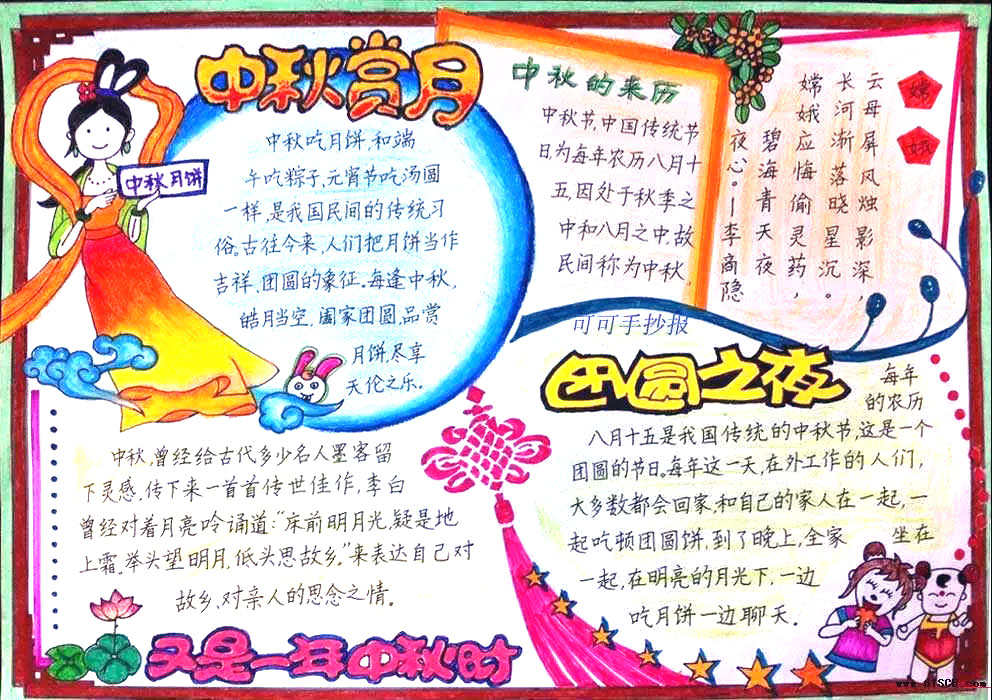 中秋赏月
中秋月饼
中秋吃月饼,和端
午吃粽子,元宵节吃汤圆
一样,是我国民间的传统习
俗。古往今来,人们把月饼当作
吉祥、团圆的象征。每逢中秋,
皓月当空,阖家团圆,品赏
月饼,尽享
天伦之乐。
中秋的来历
中秋节,中国传统节
日为每年农历八月十
五,因处于秋季之
中和八月之中,故
民间称为中秋。
嫦
娥
云母屏风烛影深,
长河渐落晓星沉。
嫦娥应悔偷灵药,
碧海青天夜
夜心。——李商隐
可可手抄报
团圆之夜
每年
的农历
八月十五是我国传统的中秋节,这是一个
团圆的节日。每年这一天,在外工作的人们,
大多数都会回家,和自己的家人在一起,一
起吃顿团圆饼,到了晚上,全家 坐在
一起,在明亮的月光下,一边
吃月饼一边聊天.
中秋,曾经给古代多少名人墨客留
下灵感,传下来一首首传世佳作,李白
曾经对着月亮吟诵道:“床前明月光,疑是地
上霜。举头望明月,低头思故乡。”来表达自己对
故乡、对亲人的思念之情。
又是一年中秋时